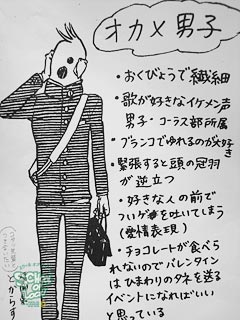 オカメ男子
・おくびょうで繊細
・歌が好きなイケメン声
男子・コーラス部所属
・ブランコでゆれるのが好き
・緊張すると頭の冠羽
が逆立つ
・好きな人の前で
ついゲロを吐いてしまう
(愛情表現)
・チョコレートが食べら
れないのでバレンタイン
はひまわりのタネを送る
イベントになればいい
と思っている
とからす